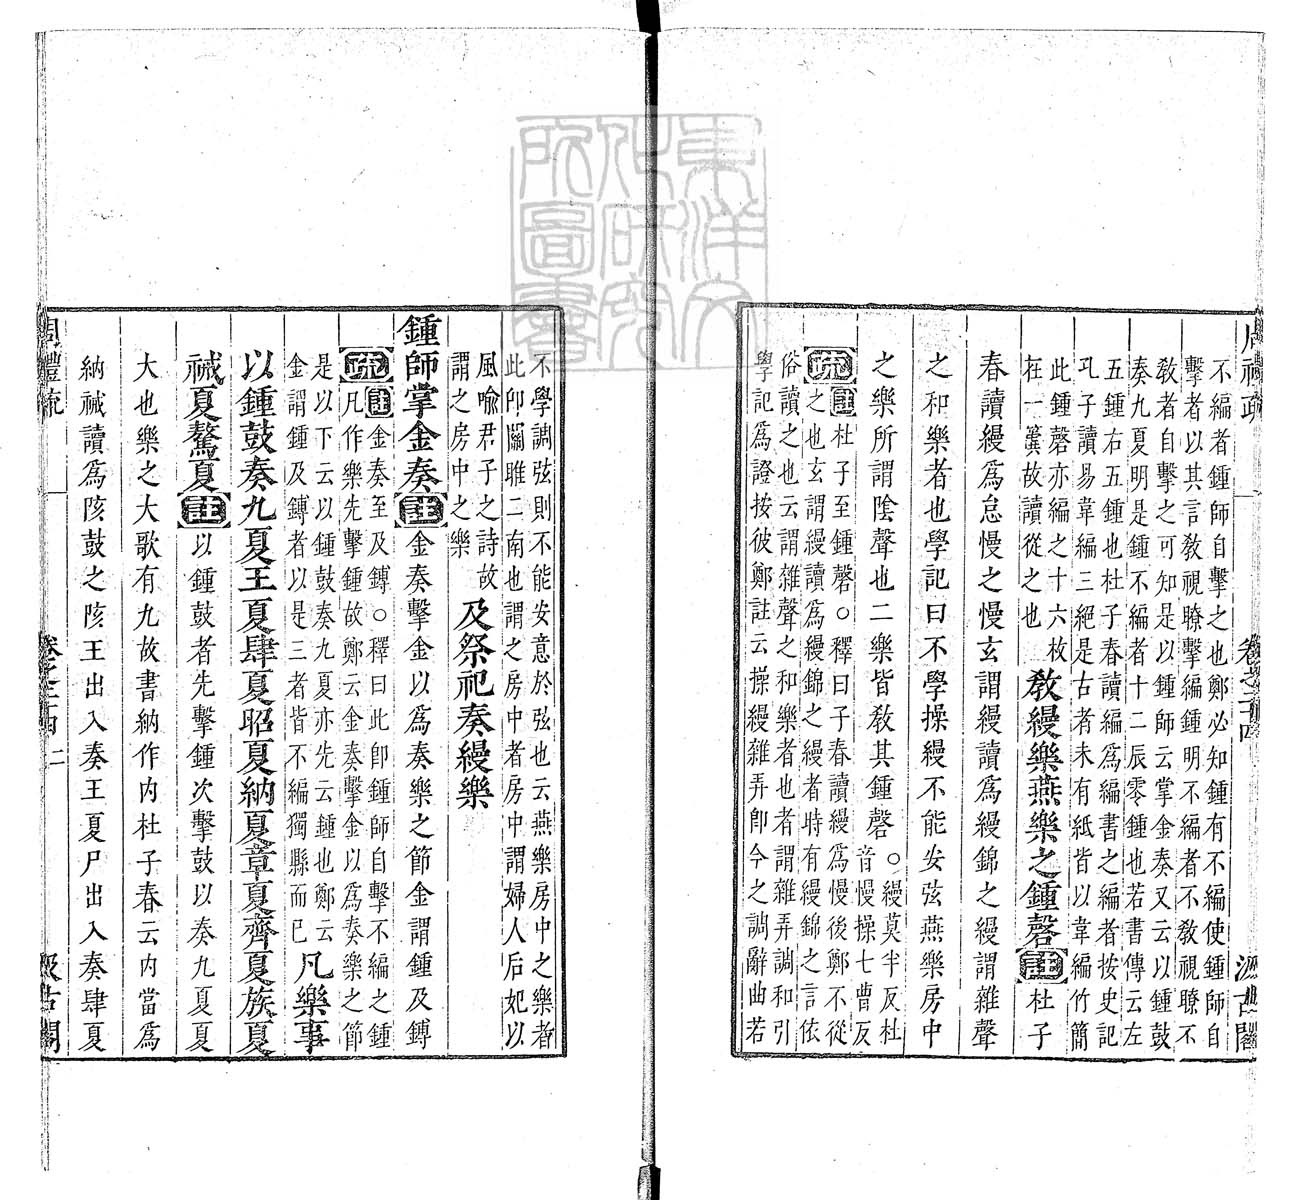 周禮疏 卷之二十四 汲古閣
不編者鍾師自擊之也鄭必知鍾有不編使鍾師自
擊者以其言敎視瞭擊編鍾明不編者不敎視瞭不
敎者自擊之可知是以鍾師云掌金奏又云以鍾鼓
奏九夏明是鍾不編者十二辰零鍾也若書傳云左
五鍾右五鍾也杜子春讀編爲編書之編者按史記
孔子讀易韋編三絕是古者未有紙皆以韋編竹簡
此鍾磬亦編之十六枚
在一簨故讀從之也
敎縵樂燕樂之鍾磬註杜子
春讀縵爲怠慢之慢玄謂縵讀爲縵錦之縵謂雜聲
之和樂者也學記曰不學操縵不能安弦燕樂房中
之樂所謂陰聲也二樂皆敎其鍾磬
○縵莫半反杜
音慢操七曹反
疏註杜子至鍾磬○釋曰子春讀縵爲慢後鄭不從
之也玄謂縵讀爲縵錦之縵者時有縵錦之言依
俗讀之也云謂雜聲之和樂者也者謂雜弄調和引
學記爲證按彼鄭註云操縵雜弄卽今之調辭曲若
不學調弦則不能安意於弦也云燕樂房中之樂者
此卽關雎二南也謂之房中者房中謂婦人后妃以
風喩君子之詩故
謂之房中之樂
及祭祀奏縵樂
鍾師掌金奏註金奏擊金以爲奏樂之節金謂鍾及鎛
疏註金奏至及鎛○釋曰此卽鍾師自擊不編之鍾
凡作樂先擊鍾故鄭云金奏擊金以爲奏樂之節
是以下云以鍾鼓奏九夏亦先云鍾也鄭云
金謂鍾及鎛者以是三者皆不編獨縣而已
凡樂事
以鍾鼓奏九夏王夏肆夏昭夏納夏章夏齊夏族夏
祴夏驁夏註以鍾鼓者先擊鍾次擊鼓以奏九夏夏
大也樂之大歌有九故書納作內杜子春云內當爲
納祴讀爲陔鼓之陔王出入奏王夏尸出入奏肆夏
周禮疏 卷之二十四 二 汲古閣
東洋文化研究所圖書